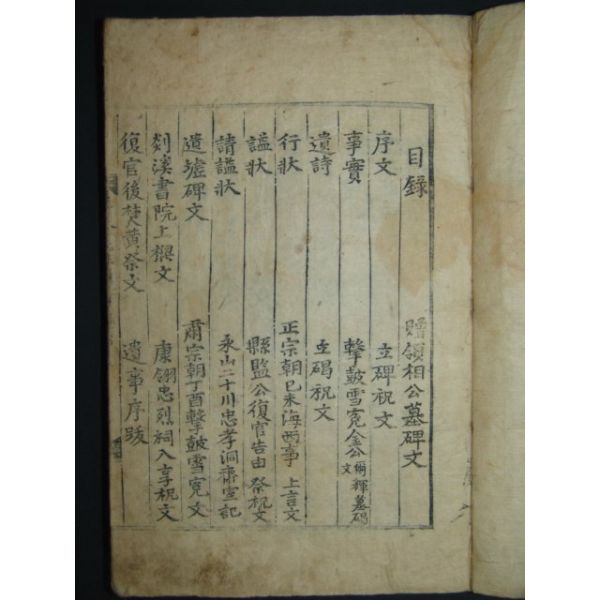 目錄 贈領相公墓碑文
序文 立碑祝文
事實 擊鼓雪寃金公爾輝墓碣文
遺詩 立碣祝文
行狀 正宗朝己未海西事 上言文
諡狀 縣監公復官告由 祭祝文
請諡狀 永山二十川忠孝洞齋室記
遺墟碑文 肅宗朝丁酉擊鼓雪寃文
剡溪書院上樑文 康翎忠烈祠入享祝文
復官後焚黃祭文 遺事序跋